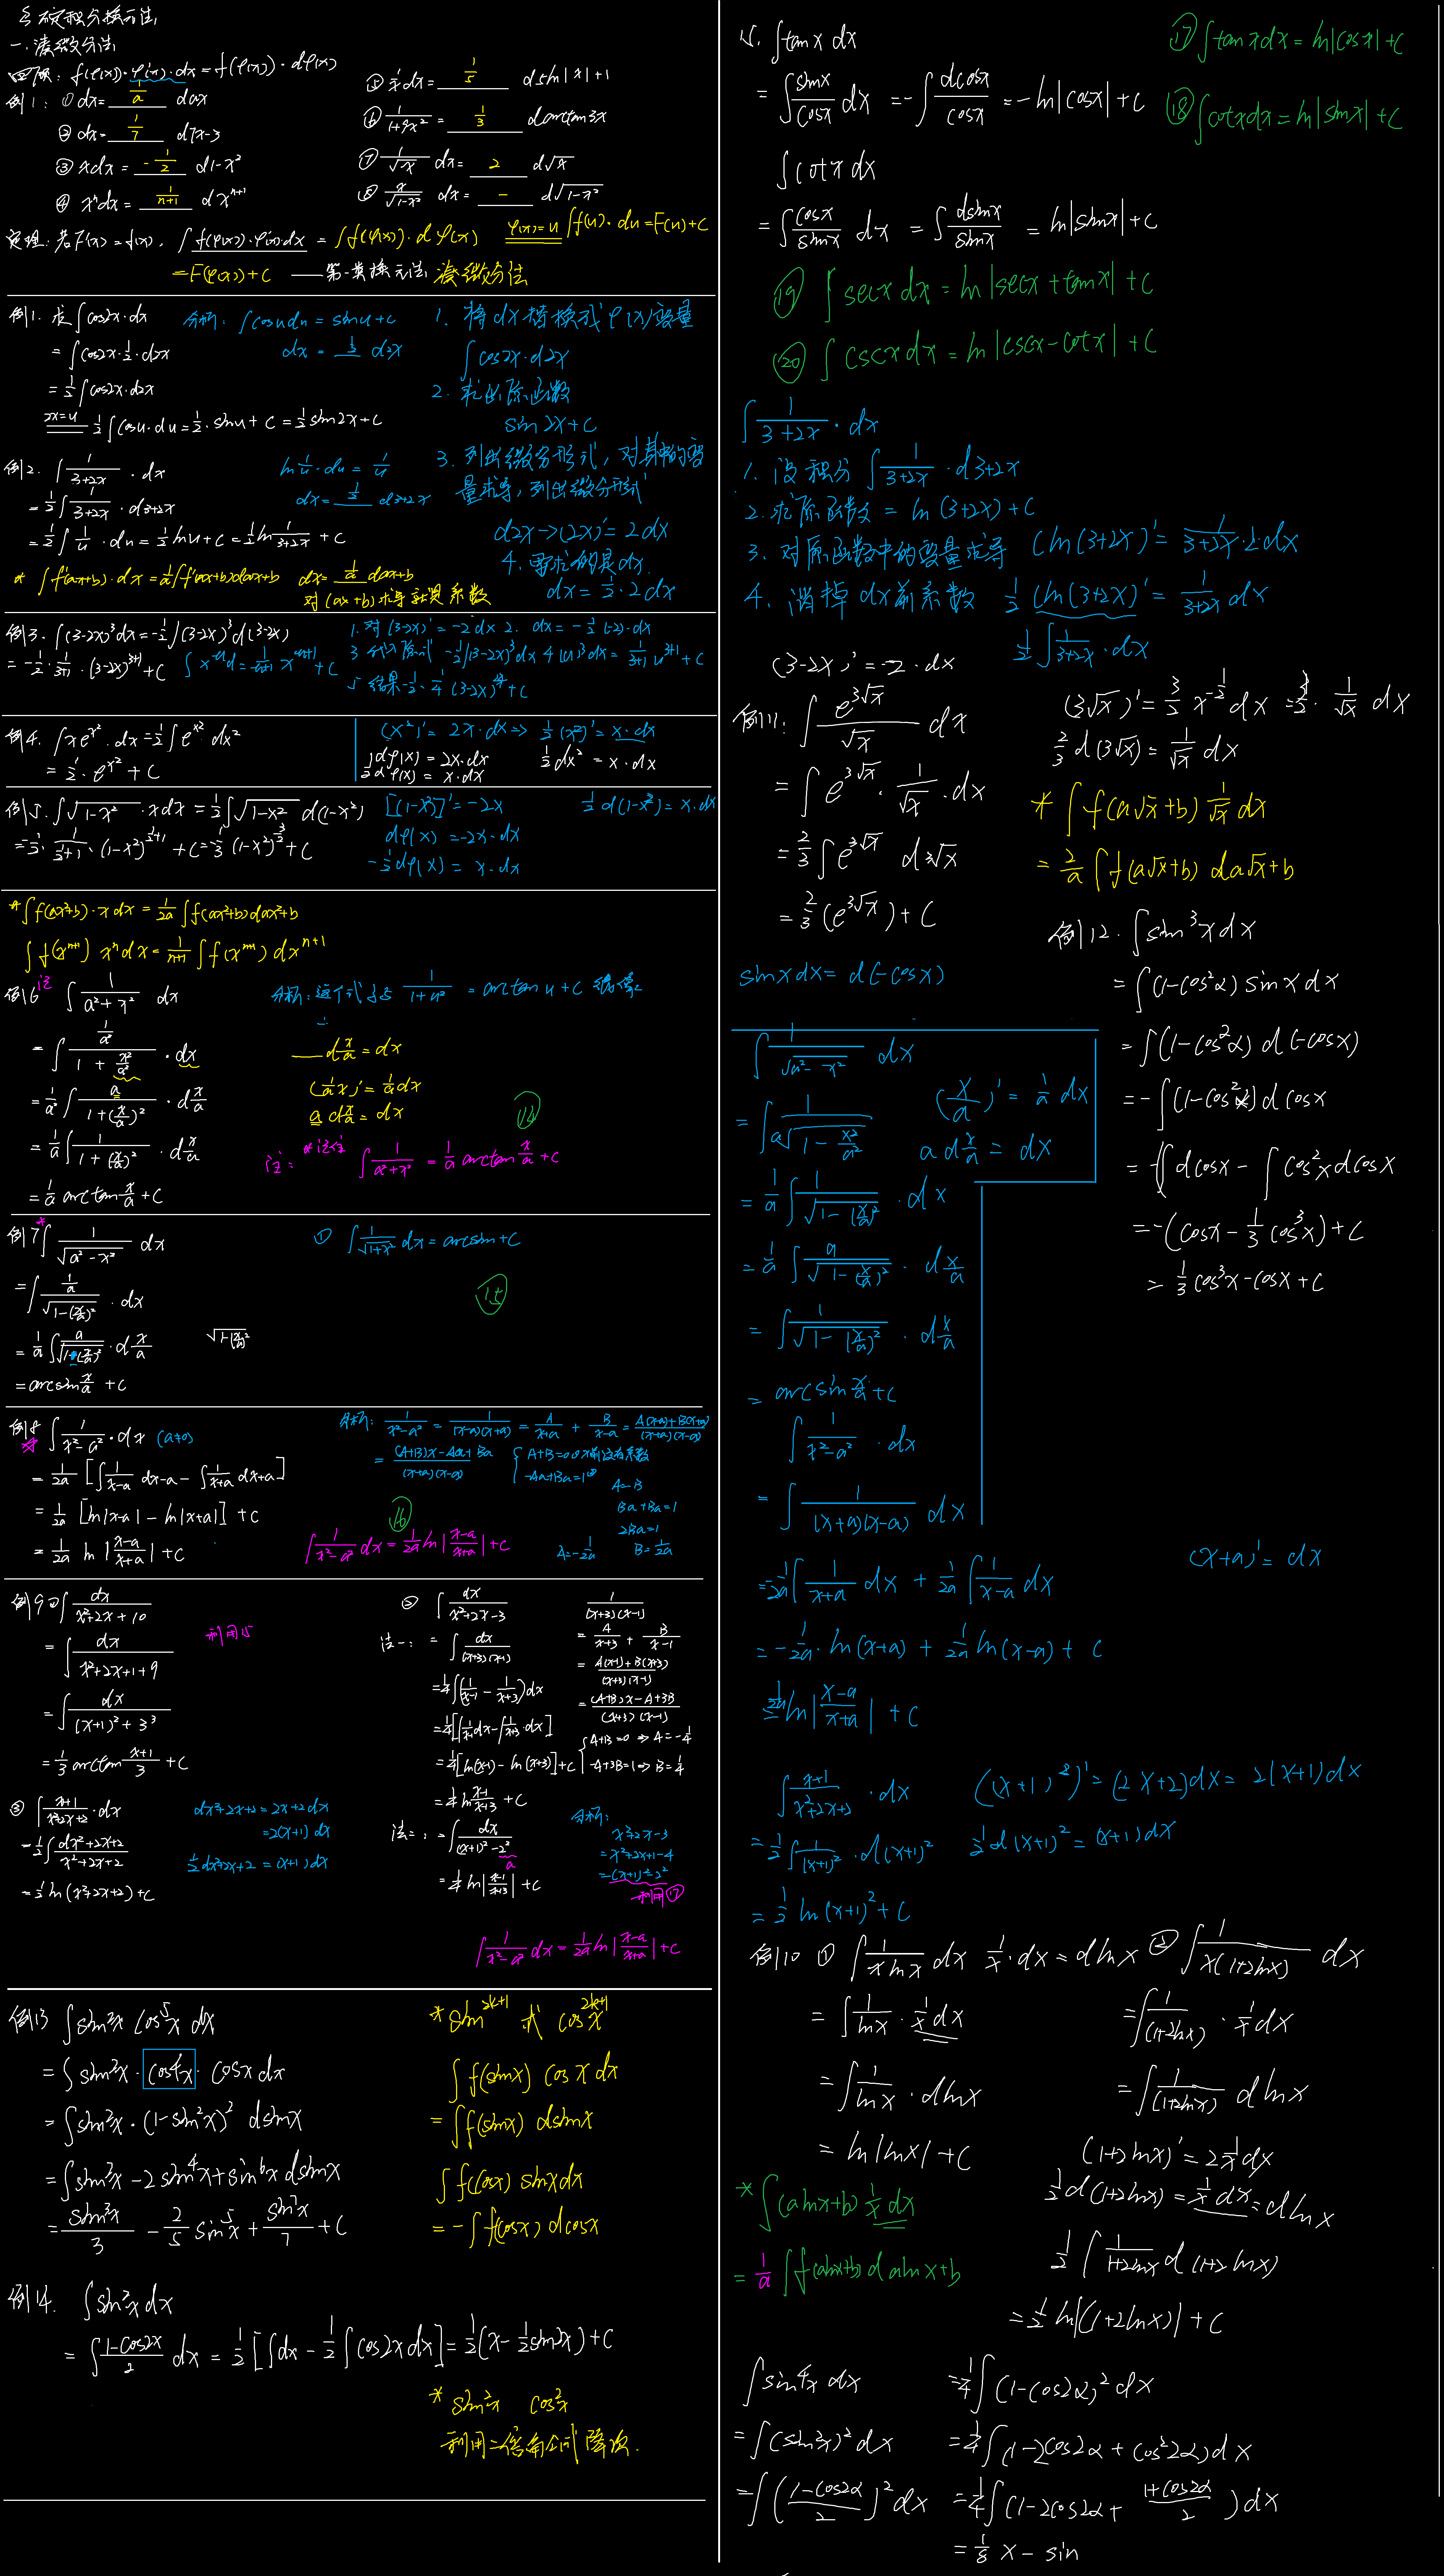 一.凑微分法
回顾: f(φ(x))·φ'(x)·dx=f(φ(x))·dφ(x)
例1: ①dx= 1/a dax
②dx= 1/7 d7x-3
③xdx= -1/2 d1-x²
④x^n dx= 1/(n+1) dx^(n+1)
⑤1/x dx= 1/5 d5ln|x|+1
⑥1/(1+9x²)= 1/3 darctan3x
⑦1/√x dx= 2 d√x
⑧x/√(1-x²) dx= - d√(1-x²)
定理:若F'(x)=f(x), ∫f(φ(x))·φ'(x)·dx=∫f(φ(x))·dφ(x) φ(x)=u ∫f(u)·du=F(u)+C
=F(φ(x))+C ——第一类换元法, 凑微分法
例1. 求∫cos2x·dx
=∫cos2x·1/2·d2x
=1/2∫cos2x·d2x
2x=u 1/2∫cosu·du=1/2·sinu+C=1/2sin2x+C
分析: ∫cosudu=sinu+C
dx=1/2 d2x
1. 将dx替换成φ(x)变量
∫cos2x·d2x
2. 求出原函数
sin2x+C
3. 列出微分形式, 对其中的变
量求导, 列出微分形式
d2x→(2x)'=2dx
4. 要求的是dx.
dx=1/2·2dx
例2. ∫1/(3+2x)·dx
=1/2∫1/(3+2x)·d3+2x
=1/2∫1/u·du=1/2lnu+C=1/2ln1/(3+2x)+C
ln1/u·du=1/u
dx=1/2 d3+2x
* ∫f(ax+b)·dx=1/a∫f(ax+b)dax+b dx=1/a dax+b
对(ax+b)求导就是系数
例3. ∫(3-2x)³dx=-1/2∫(3-2x)³d(3-2x)
=-1/2·1/(3+1)·(3-2x)^(3+1)+C
1.对(3-2x)'=-2dx 2. dx=-1/2(-2)·dx
3 代入原式 -1/2∫(3-2x)³dx 4 (u)³dx=1/(3+1)u^(3+1)+C
5 结果-1/2·1/4(3-2x)⁴+C
例4. ∫xe^(x²)·dx=1/2∫e^(x²)dx²
=1/2·e^(x²)+C
(x²)'=2x·dx⇒1/2(x²)'=x·dx
dφ(x)=2x·dx 1/2dx²=x·dx
1/2dφ(x)=x·dx
例5. ∫√(1-x²)·xdx=1/2∫√(1-x²)d(1-x²)
[(1-x²)]'=-2x
1/2d(1-x²)=x·dx
dφ(x)=-2x·dx
-1/2dφ(x)=x·dx
*∫f(ax²+b)·xdx=1/2a∫f(ax²+b)dax²+b
∫f(x^(n+1))x^n dx=1/(n+1)∫f(x^(n+1))dx^(n+1)
例6 记 ∫1/(a²+x²) dx
=∫(1/a²)/(1+x²/a²)·dx
=1/a²∫a/(1+(x/a)²)·dx/a
=1/a∫1/(1+(x/a)²)·dx/a
=1/a arctanx/a+C
分析: 这个式子与1/(1+u²)=arctanu+C 很像
—dx/a=dx
(1/a x)'=1/a dx
a dx/a=dx
⑭
注: *记住 ∫1/(a²+x²)=1/a arctanx/a+C
例7* ∫1/√(a²-x²) dx
=∫(1/a)/√(1-(x/a)²)·dx
=1/a∫a/√(1-(x/a)²)·dx/a
=arcsinx/a+C
√(1-(x/a)²)
① ∫1/√(1+x²)dx=arcsin+C
⑮
例8 ∫1/(x²-a²)·dx (a≠0)
=1/2a[∫1/(x-a)dx-a-∫1/(x+a)dx+a]
=1/2a[ln|x-a|-ln|x+a|]+C
=1/2a ln|(x-a)/(x+a)|+C
分析: 1/(x²-a²)=1/((x-a)(x+a))=A/(x+a)+B/(x-a)=(A(x-a)+B(x+a))/((x+a)(x-a))
=((A+B)x-Aa+Ba)/((x+a)(x-a)) {A+B=0①x前没有系数
-Aa+Ba=1②
A=-B
Ba+Ba=1
2Ba=1
A=-1/2a B=1/2a
⑯
∫1/(x²-a²)dx=1/2a ln|(x-a)/(x+a)|+C
例9 ①∫dx/(x²+2x+10)
=∫dx/(x²+2x+1+9)
=∫dx/((x+1)²+3³)
=1/3arctan(x+1)/3+C
利用15
② ∫dx/(x²+2x-3)
法一: =∫dx/((x+3)(x-1))
=1/4∫(1/(x-1)-1/(x+3))dx
=1/4[∫1/(x-1)dx-∫1/(x+3)dx]
=1/4[ln(x-1)-ln(x+3)]+C
=1/4ln(x-1)/(x+3)+C
1/((x+3)(x-1))
=A/(x+3)+B/(x-1)
=(A(x-1)+B(x+3))/((x+3)(x-1))
=((A+B)x-A+3B)/((x+3)(x-1))
{A+B=0⇒A=-1/4
-A+3B=1⇒B=1/4
法二: =∫dx/((x+1)²-2²)
a
=1/4ln|(x-1)/(x+3)|+C
分析:
x²+2x-3
=x²+2x+1-4
=(x+1)²-2²
利用⑰
∫1/(x²-a²)dx=1/2a ln|(x-a)/(x+a)|+C
③ ∫(x+1)/(x²+2x+2)·dx
=1/2∫dx²+2x+2/(x²+2x+2)
=1/2ln(x²+2x+2)+C
dx²+2x+2=2x+2dx
=2(x+1)dx
1/2dx²+2x+2=(x+1)dx
例13 ∫sin²xcos⁵xdx
=∫sin²x·cos⁴x·cosxdx
=∫sin²x·(1-sin²x)²dsinx
=∫sin²x-2sin⁴x+sin⁶xdsinx
=sin³x/3-2/5sin⁵x+sin⁷x/7+C
*sin^(2k+1) 或 cos^(2k+1)x
∫f(sinx)cosxdx
=∫f(sinx)dsinx
∫f(cosx)sinxdx
=-∫f(cosx)dcosx
例14. ∫sin²xdx
=∫(1-cos2x)/2 dx=1/2[∫dx-1/2∫cos2xdx]=1/2(x-1/2sin2x)+C
* sin²x cos²x
利用二倍角公式降次.
15. ∫tanxdx
=∫sinx/cosx dx=-∫dcosx/cosx=-ln|cosx|+C
∫cotxdx
=∫cosx/sinx dx=∫dsinx/sinx=ln|sinx|+C
⑰∫tanxdx=ln|cosx|+C
⑱∫cotxdx=ln|sinx|+C
⑲ ∫secxdx=ln|secx+tanx|+C
⑳ ∫cscxdx=ln|cscx-cotx|+C
∫1/(3+2x)·dx
1. 设积分∫1/(3+2x)·d3+2x
2.求原函数=ln(3+2x)+C
3. 对原函数中的变量求导 (ln(3+2x)'=1/(3+2x)·2dx
4. 消掉dx前系数 1/2(ln(3+2x)'=1/(3+2x)dx
1/2∫1/(3+2x)·dx
(3-2x)'=-2·dx
例11: ∫e^(3√x)/√x dx
=∫e^(3√x)·1/√x·dx
=2/3∫e^(3√x)d3√x
=2/3(e^(3√x))+C
(3√x)'=3/2x^(-1/2)dx=3/2·1/√x dx
2/3d(3√x)=1/√x dx
*∫f(a√x+b)1/√x dx
=2/a∫f(a√x+b)da√x+b
例12. ∫sin³xdx
=∫(1-cos²α)sinxdx
=∫(1-cos²α)d(-cosx)
=-∫(1-cos²x)dcosx
=-∫dcosx-∫cos²xdcosx
=-(cosx-1/3cos³x)+C
=1/3cos³x-cosx+C
sinxdx=d(-cosx)
∫1/√(a²-x²) dx
=∫1/(a√(1-x²/a²))
=1/a∫1/√(1-(x/a)²)·dx
=1/a∫a/√(1-(x/a)²)·dx/a
=∫1/√(1-(x/a)²)·dx/a
=arcsinx/a+C
(x/a)'=1/a dx
a dx/a=dx
∫1/(x²-a²)·dx
=∫1/((x+a)(x-a)) dx
=-1/2a∫1/(x+a)dx+1/2a∫1/(x-a)dx
=-1/2a·ln(x+a)+1/2a ln(x-a)+C
=1/2a ln|(x-a)/(x+a)|+C
(x+a)'=dx
∫(x+1)/(x²+2x+2)·dx
=1/2∫1/(x+1)²·d(x+1)²
=1/2ln(x+1)²+C
((x+1)²)'=(2x+2)dx=2(x+1)dx
1/2d(x+1)²=(x+1)dx
例10 ① ∫1/(xlnx)dx 1/x·dx=dlnx
=∫1/lnx·1/x dx
=∫1/lnx·dlnx
=ln|lnx|+C
② ∫1/(x(1+2lnx)) dx
=∫1/(1+2lnx)·1/x dx
=∫1/(1+2lnx) dlnx
(1+2lnx)'=2 1/x dx
1/2d(1+2lnx)=1/x dx=dlnx
1/2∫1/(1+2lnx)d(1+2lnx)
=1/2ln|(1+2lnx)|+C
*∫(alnx+b)1/x dx
=1/a∫f(alnx+b)dalnx+b
∫sin⁴xdx
=∫(sin²x)²dx
=∫((1-cos2α)/2)²dx
=1/4∫(1-cos2α)²dx
=1/4∫(1-2cos2α+cos²2α)dx
=1/4∫(1-2cos2α+(1+cos2α)/2)dx
=1/8x-sin